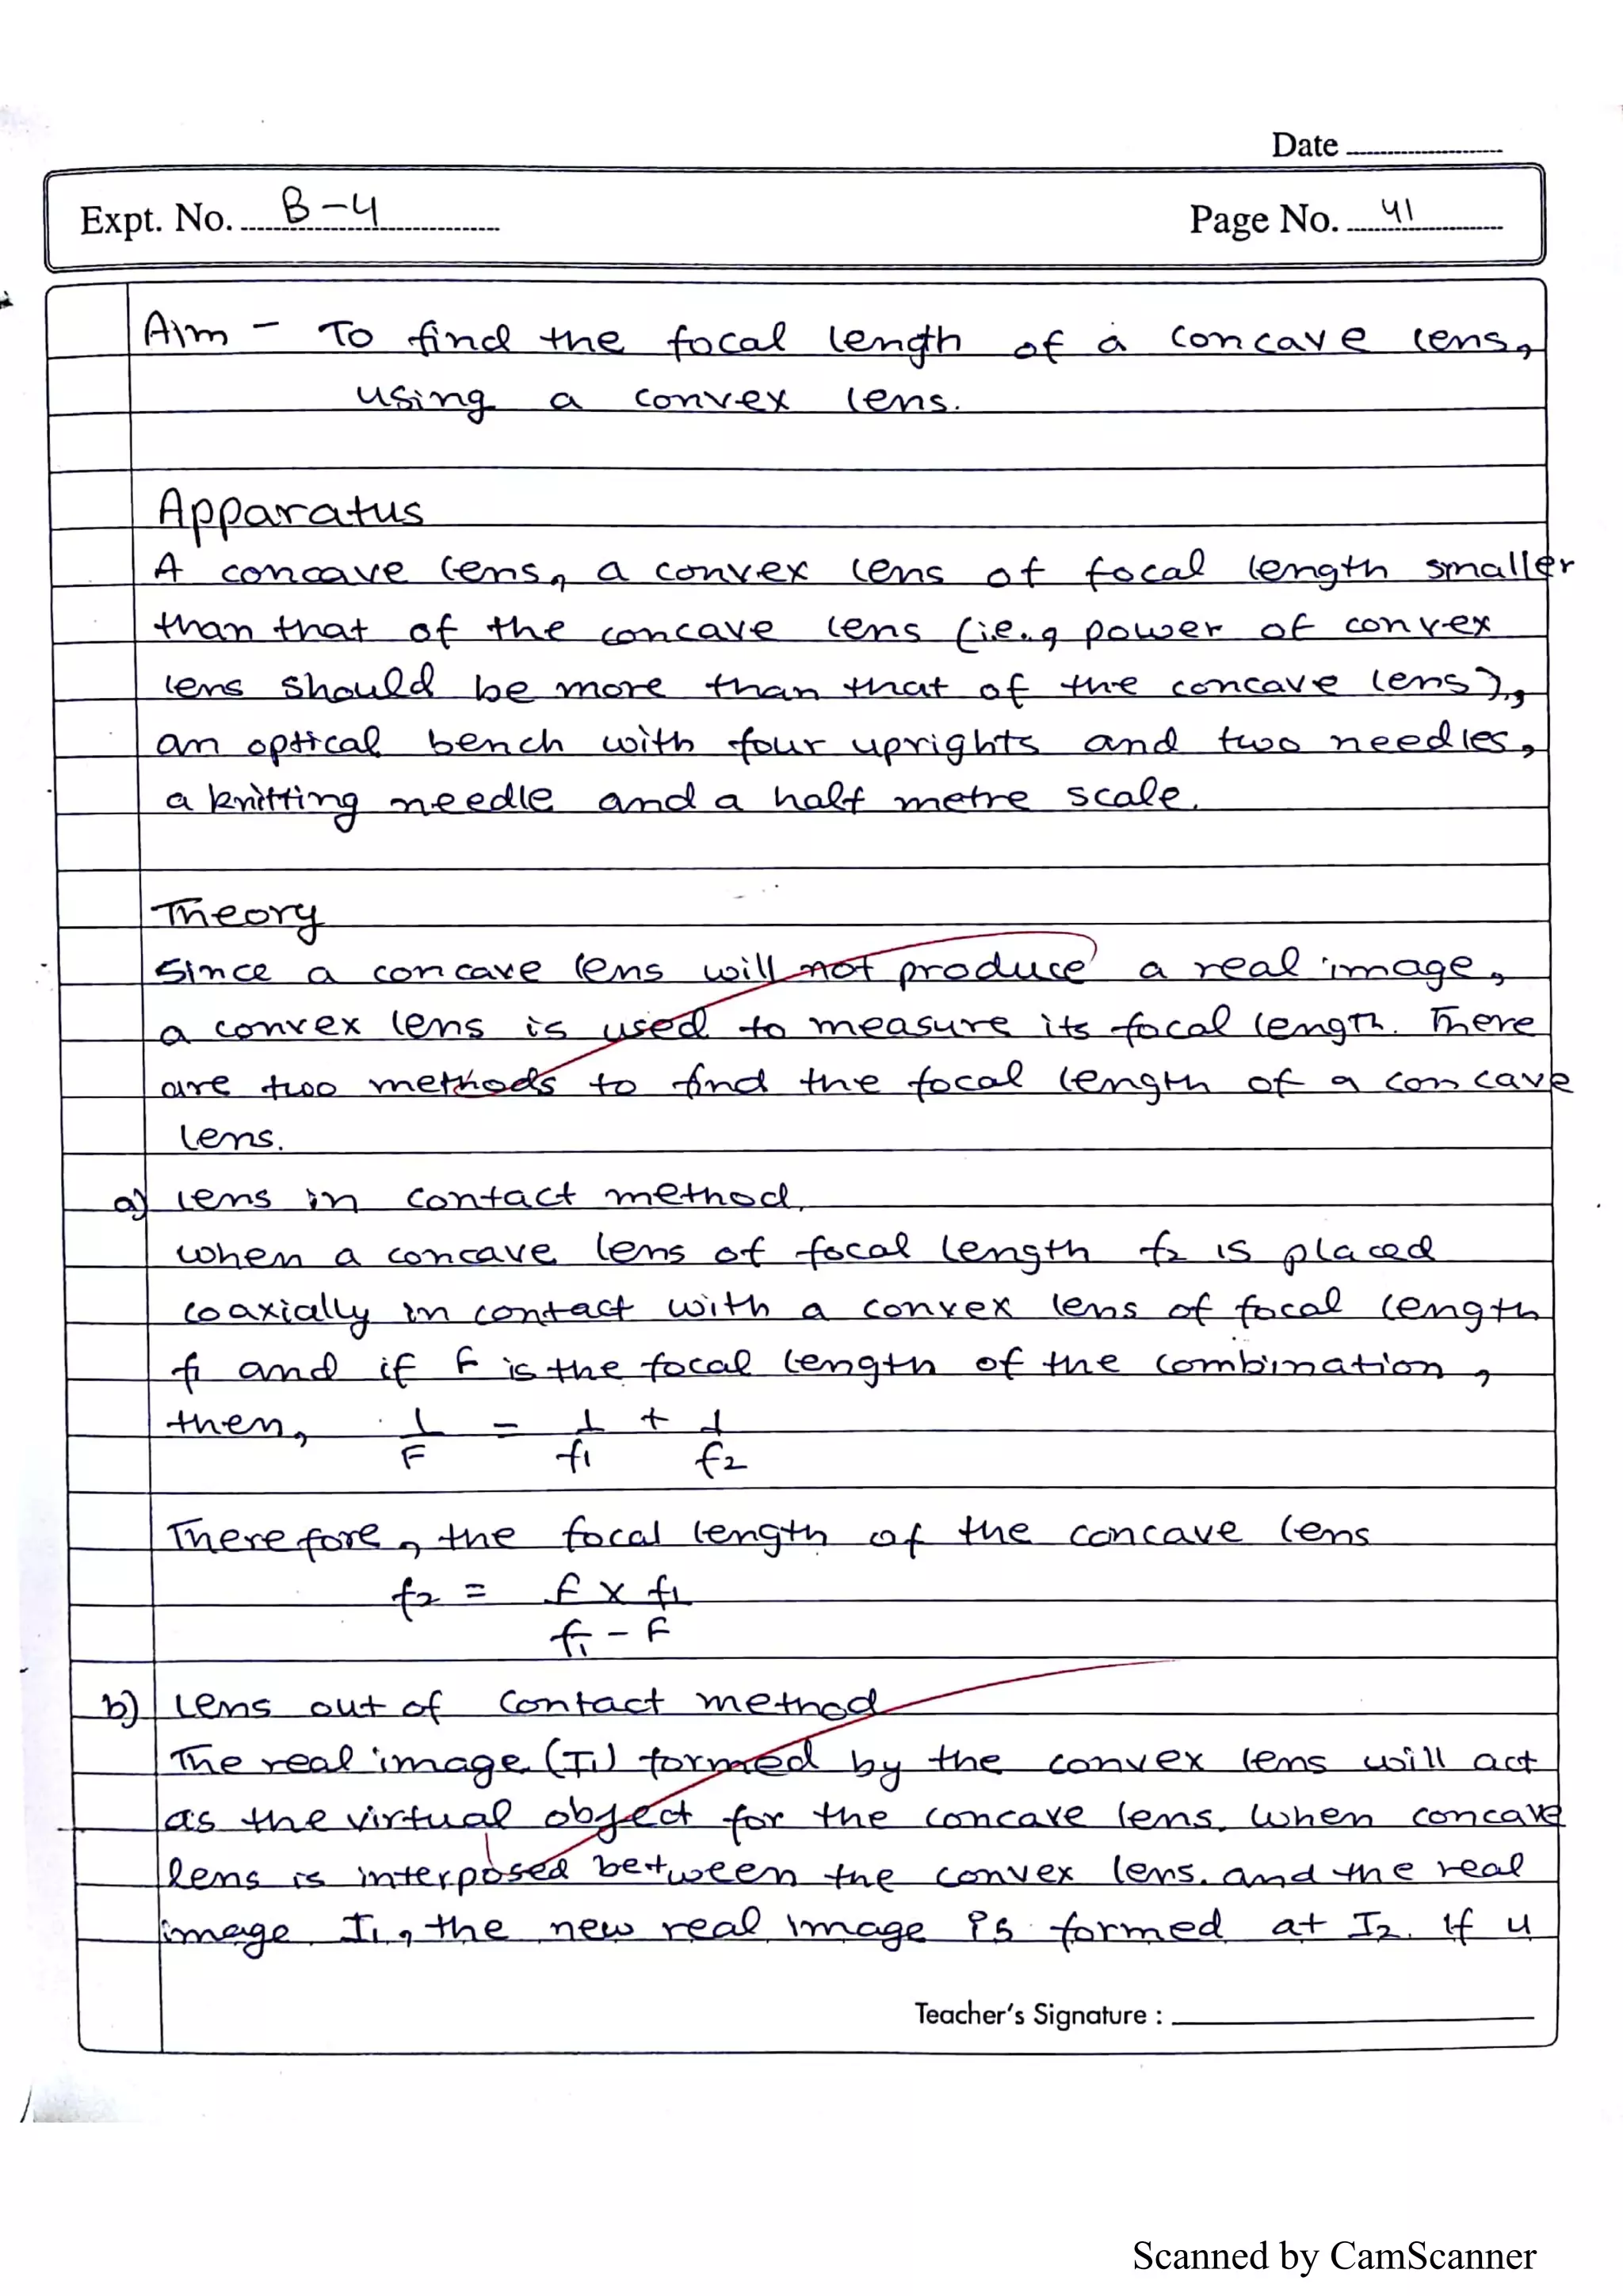 Date
Expt. No. B-4
Page No. 41
Aim - To find the focal length of a concave lens,
using a convex lens.
Apparatus
A concave lens, a convex lens of focal length smaller
than that of the concave lens (i.e., power of convex
lens should be more than that of the concave lens),
an optical bench with four uprights and two needles,
a knitting needle and a half metre scale.
Theory
Since a concave lens will not produce a real image,
a convex lens is used to measure its focal length. There
are two methods to find the focal length of a concave
lens.
a) lens in contact method.
when a concave lens of focal length f2 is placed
coaxially in contact with a convex lens of focal length
f1 and if F is the focal length of the combination,
then, 1/F = 1/f1 + 1/f2
Therefore, the focal length of the concave lens
f2 = F x f1
f1 - F
b) lens out of contact method
The real image (I1) formed by the convex lens will act
as the virtual object for the concave lens. When concave
lens is interposed between the convex lens. and the real
image I1, the new real image is formed at I2. If u
Teacher's Signature :
Scanned by CamScanner